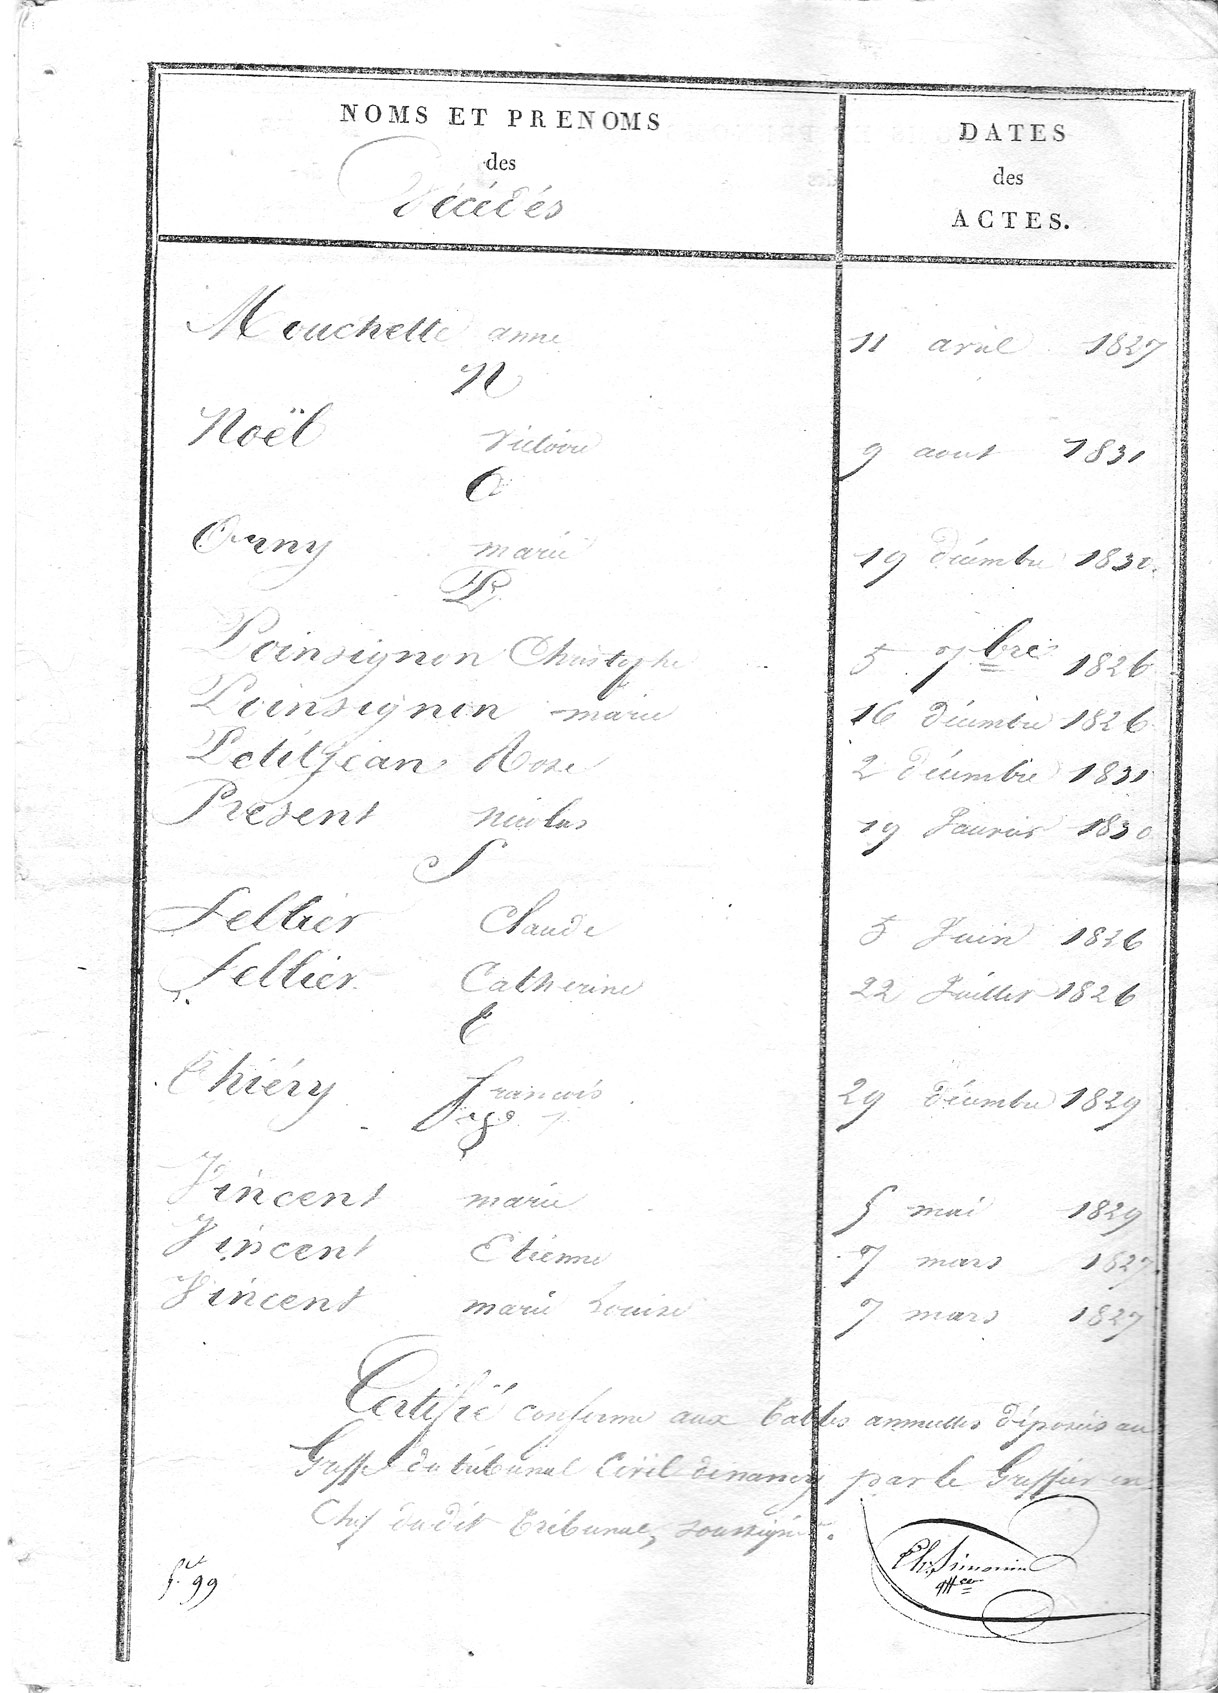 NOMS ET PRENOMS
des
Décédés
DATES
des
ACTES.
Mouchette anne 11 avril 1827
N
Noël Victoire 9 aout 1831
O
Orny marie 19 décembre 1830.
P
Poinsignon Christophe 5 7bre 1826
Poinsignon marie 16 décembre 1826
Petitjean Rose 2 décembre 1831
Présent nicolas 19 Janvier 1830
S
Sellier Claude 5 Juin 1826
Sellier Catherine 22 Juillet 1826
T
Thiéry françois 29 décembre 1829
Vincent marie 5 mai 1829
Vincent Etienne 7 mars 1827
Vincent marie Louise 7 mars 1827
Certifié conforme aux tables annuelles déposées au
Greffe du tribunal Civil de nancy par le Greffier en
Chef dudit tribunal, soussigné.
Simonin
99